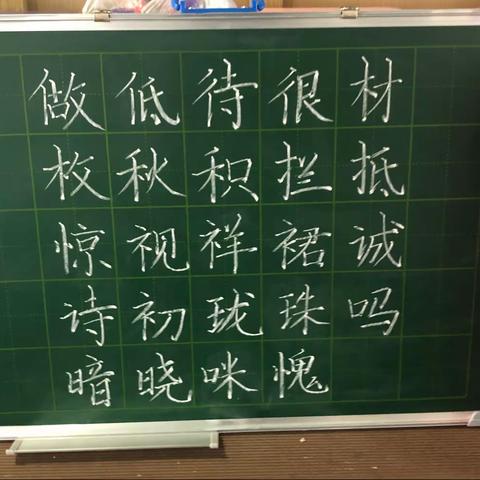 做低待很材
枚秋积拦抵
惊视祥裙诚
诗初珑珠吗
暗晓咪愧